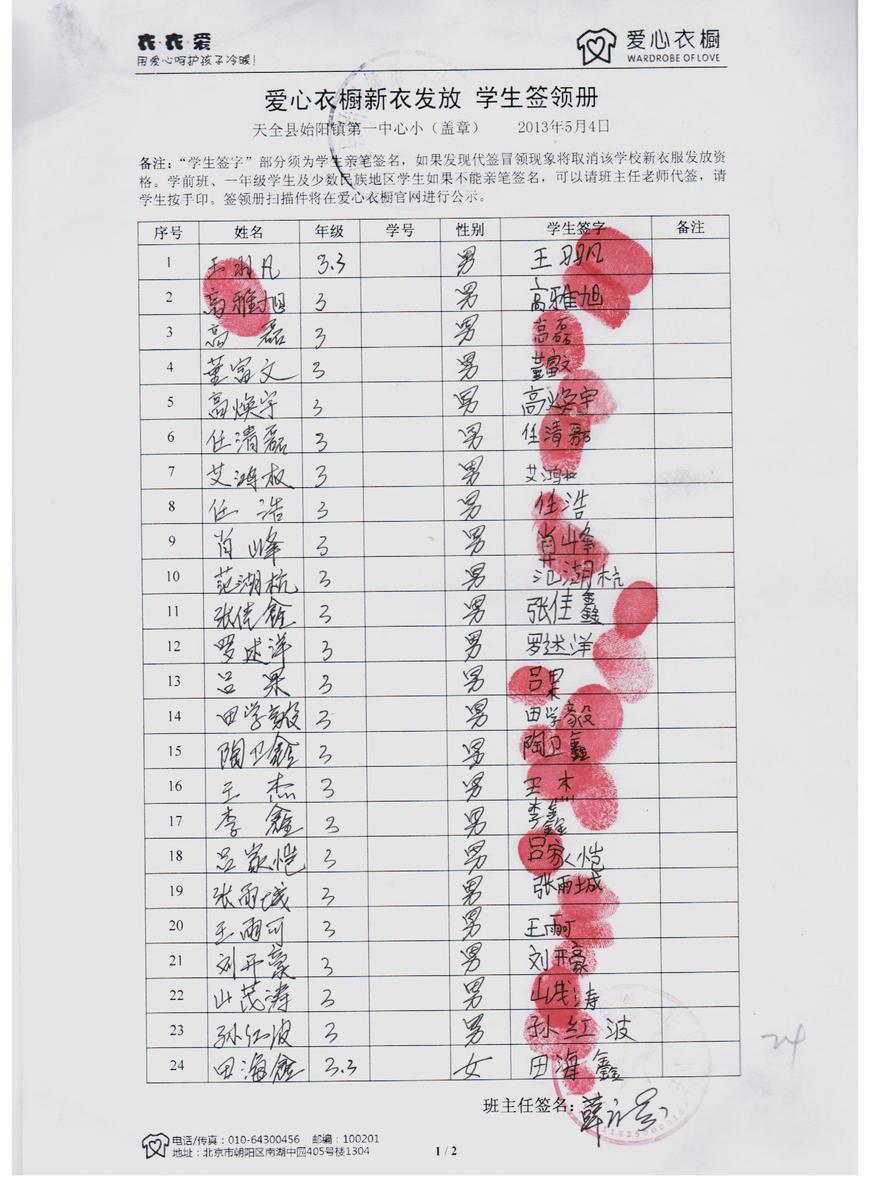 衣·衣·爱
用爱心呵护孩子冷暖!
爱心衣橱
WARDROBE OF LOVE
爱心衣橱新衣发放 学生签领册
天全县始阳镇第一中心小（盖章） 2013年5月4日
备注：“学生签字”部分须为学生亲笔签名，如果发现代签冒领现象将取消该学校新衣服发放资
格。学前班、一年级学生及少数民族地区学生如果不能亲笔签名，可以请班主任老师代签，请
学生按手印。签领册扫描件将在爱心衣橱官网进行公示。
序号 姓名 年级 学号 性别 学生签字 备注
1 王羽凡 3.3 男 王羽凡
2 高雅旭 3 男 高雅旭
3 高磊 3 男 高磊
4 董富文 3 男 董富文
5 高焕宇 3 男 高焕宇
6 任清磊 3 男 任清磊
7 艾鸿权 3 男 艾鸿权
8 任浩 3 男 任浩
9 肖峰 3 男 肖峰
10 范湖杭 3 男 范湖杭
11 张佳鑫 3 男 张佳鑫
12 罗述洋 3 男 罗述洋
13 吕果 3 男 吕果
14 田学毅 3 男 田学毅
15 陶卫鑫 3 男 陶卫鑫
16 王杰 3 男 王杰
17 李鑫 3 男 李鑫
18 吕家恺 3 男 吕家恺
19 张雨城 3 男 张雨城
20 王雨可 3 男 王雨可
21 刘开豪 3 男 刘开豪
22 山茂涛 3 男 山茂涛
23 孙红波 3 男 孙红波
24 田海鑫 3.3 女 田海鑫
24
班主任签名：
电话/传真：010-64300456 邮编：100201
地址：北京市朝阳区南湖中园405号楼1304
1 / 2